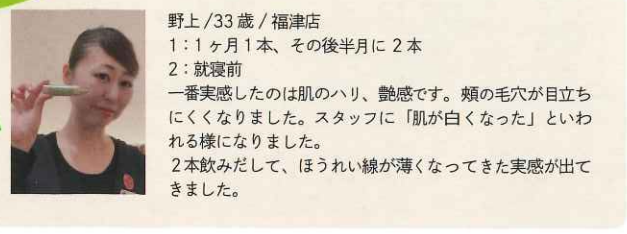 野上 /33 歳 / 福津店
1：1ヶ月1本、その後半月に 2 本
2：就寝前
一番実感したのは肌のハリ、艶感です。頰の毛穴が目立ち
にくくなりました。スタッフに「肌が白くなった」といわ
れる様になりました。
２本飲みだして、ほうれい線が薄くなってきた実感が出て
きました。